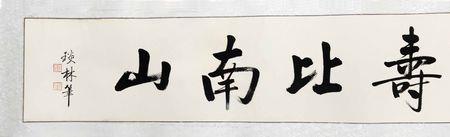 壽比南山
琰林筆